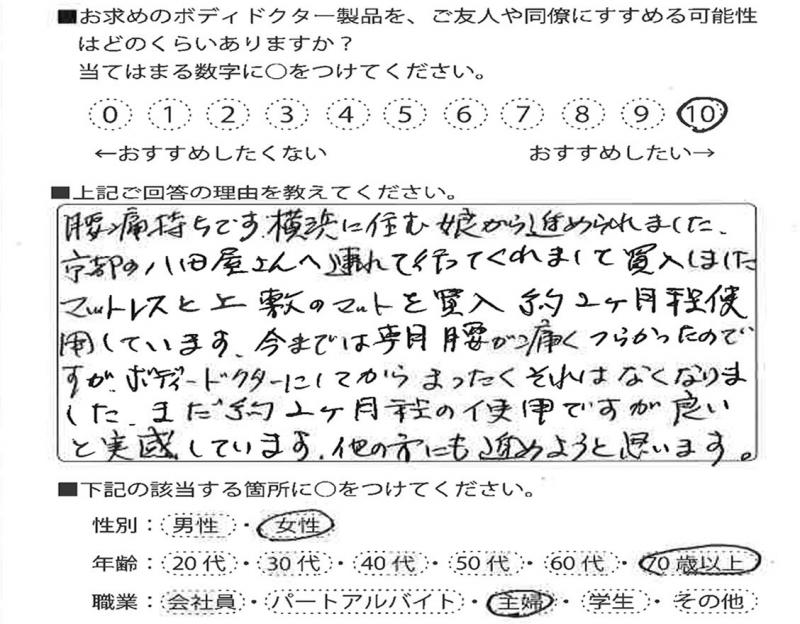 ■お求めのボディドクター製品を、ご友人や同僚にすすめる可能性
はどのくらいありますか？
当てはまる数字に○をつけてください。
0 1 2 3 4 5 6 7 8 9 10
←おすすめしたくない おすすめしたい→
■上記ご回答の理由を教えてください。
腰痛持ちです.横浜に住む娘から進められました.
京都の八田屋さんへ連れて行ってくれまして買入しました
マットレスと上敷のマットを買入 約2ヶ月程使
用しています.今までは毎月腰が痛くつらかったので
すが.ボディードクターにしてからまったくそれはなくなりま
した.まだ約2ヶ月程の使用ですが良い
と実感しています.他の方にも進めようと思います。
■下記の該当する箇所に○をつけてください。
性別：男性・女性
年齢：20代・30代・40代・50代・60代・70歳以上
職業：会社員・パートアルバイト・主婦・学生・その他